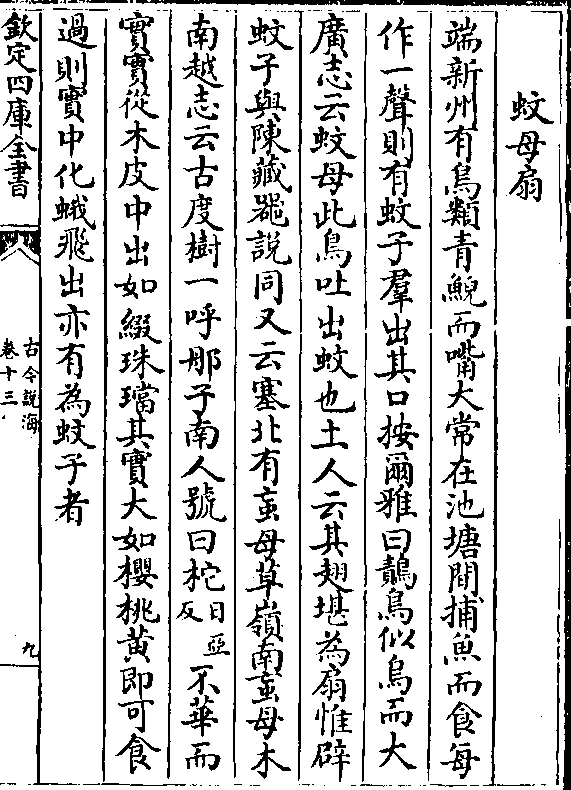 蚊母扇
端新州有鳥類青鶃而嘴大常在池塘間捕魚而食每
作一聲則有蚊子羣出其口按爾雅曰鷏鳥似烏而大
廣志云蚊母此鳥吐出蚊也土人云其翅堪為扇惟辟
蚊子與陳藏噐說同又云塞北有䖟母草嶺南䖟母木
南越志云古度樹一呼那子南人號曰柁亞目反不華而
實實從木皮中出如綴珠璫其實大如櫻桃黄即可食
過則實中化蛾飛出亦有為蚊子者
欽定四庫全書
古今說海
卷十三
九